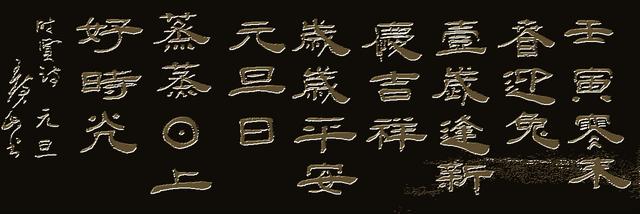 壬寅寒来
春迎兔
壹歲逢新
慶吉祥
歲歲平安
元旦日
蒸蒸日上
好時光
元旦